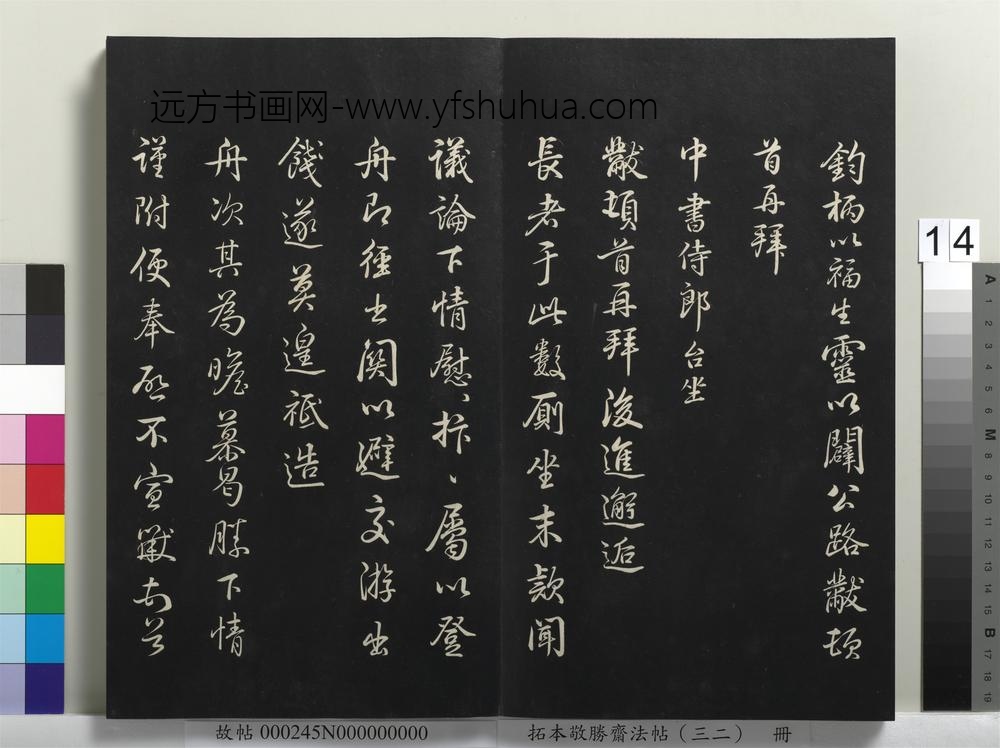 远方书画网-www.yfshuhua.com
鈞柄以福生靈以闢公路黻頓
首再拜
中書侍郎台坐
黻頓首再拜後進邂逅
長者于此數厠坐末款聞
議論下情慰、抃、屬以登
舟即徑出関以避交游出
餞遂莫遑祗造
舟次其為瞻慕曷勝下情
謹附便奉啟不宣黻
14
故帖 000245N000000000
拓本敬勝齋法帖（三二） 冊
A 1 2 3 4 5 6 M 8 9 10 11 12 13 14 15 B 17 18 19